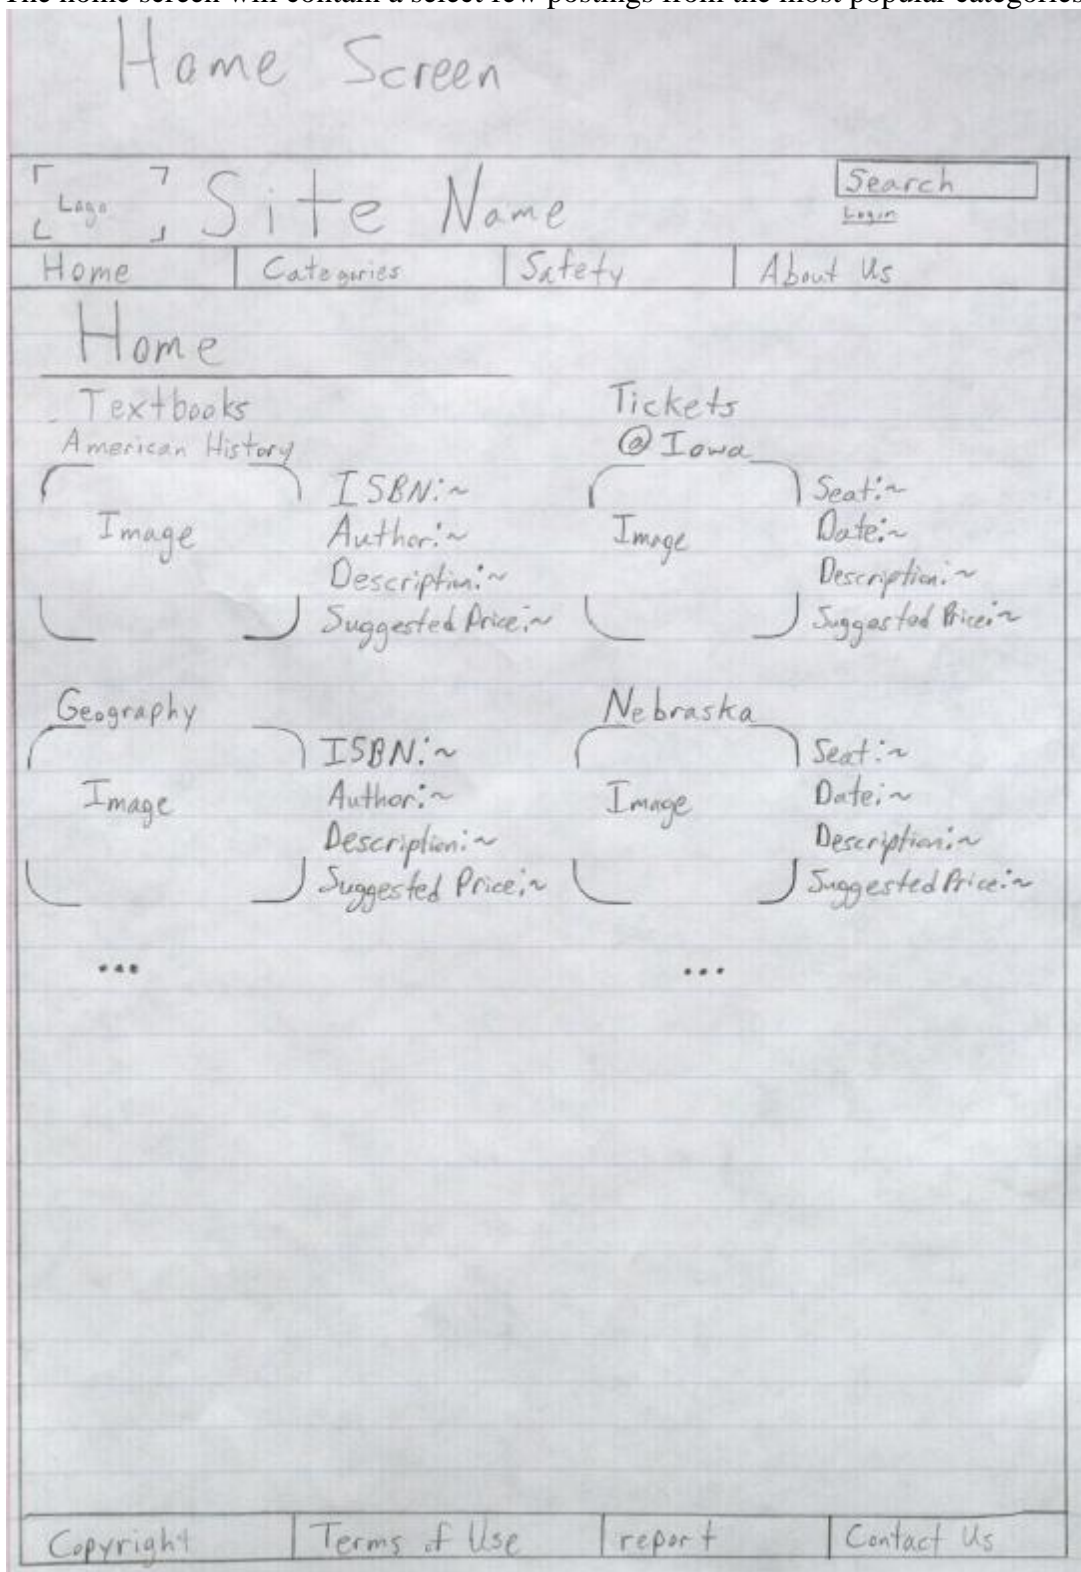 The home screen will contain a select few postings from the most popular categories
Home Screen
Logo
Site Name
Search
Login
Home
Categories
Safety
About Us
Home
Textbooks
American History
Image
ISBN:~
Author:~
Description:~
Suggested Price:~
Tickets
@ Iowa
Image
Seat:~
Date:~
Description:~
Suggested Price:~
Geography
Image
ISBN:~
Author:~
Description:~
Suggested Price:~
...
Nebraska
Image
Seat:~
Date:~
Description:~
Suggested Price:~
...
Copyright
Terms of Use
report
Contact Us